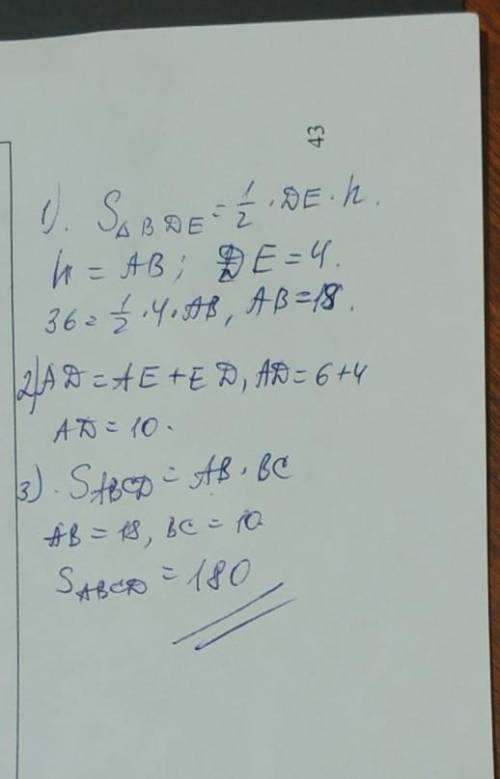 43
1). S△BDE = 1/2 · DE · h.
h = AB; DE = 4.
36 = 1/2 · 4 · AB, AB = 18.
2) AD = AE + ED, AD = 6 + 4
AD = 10.
3). SABCD = AB · BC
AB = 18, BC = 10
SABCD = 180